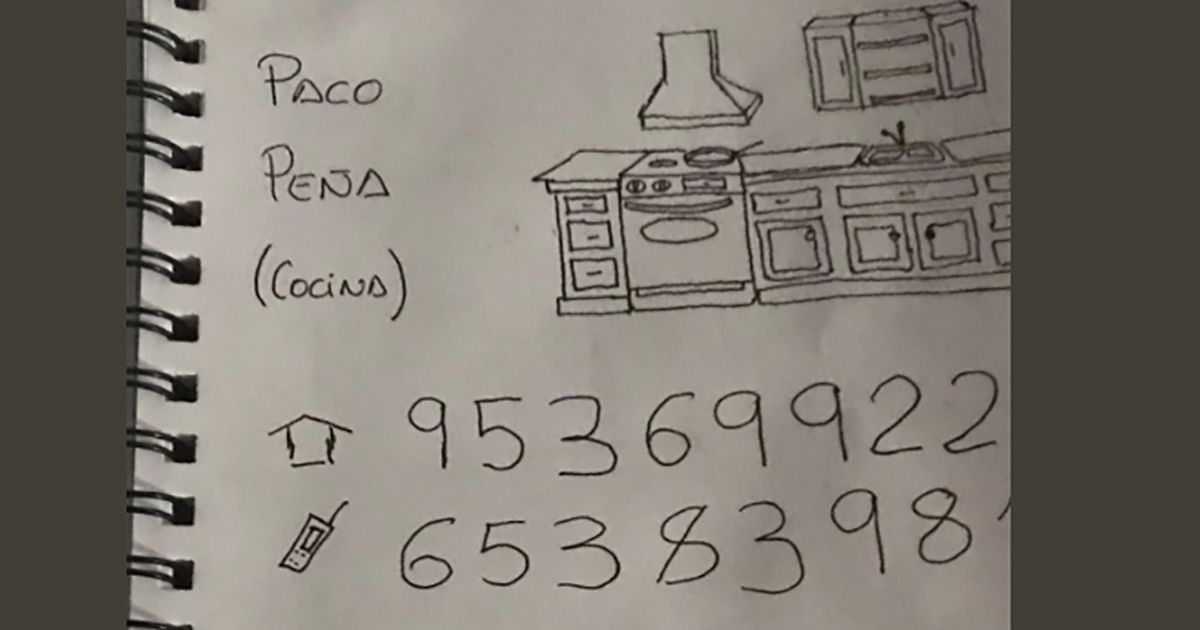 PACO
PEÑA
(COCINA)
95369922
6538398